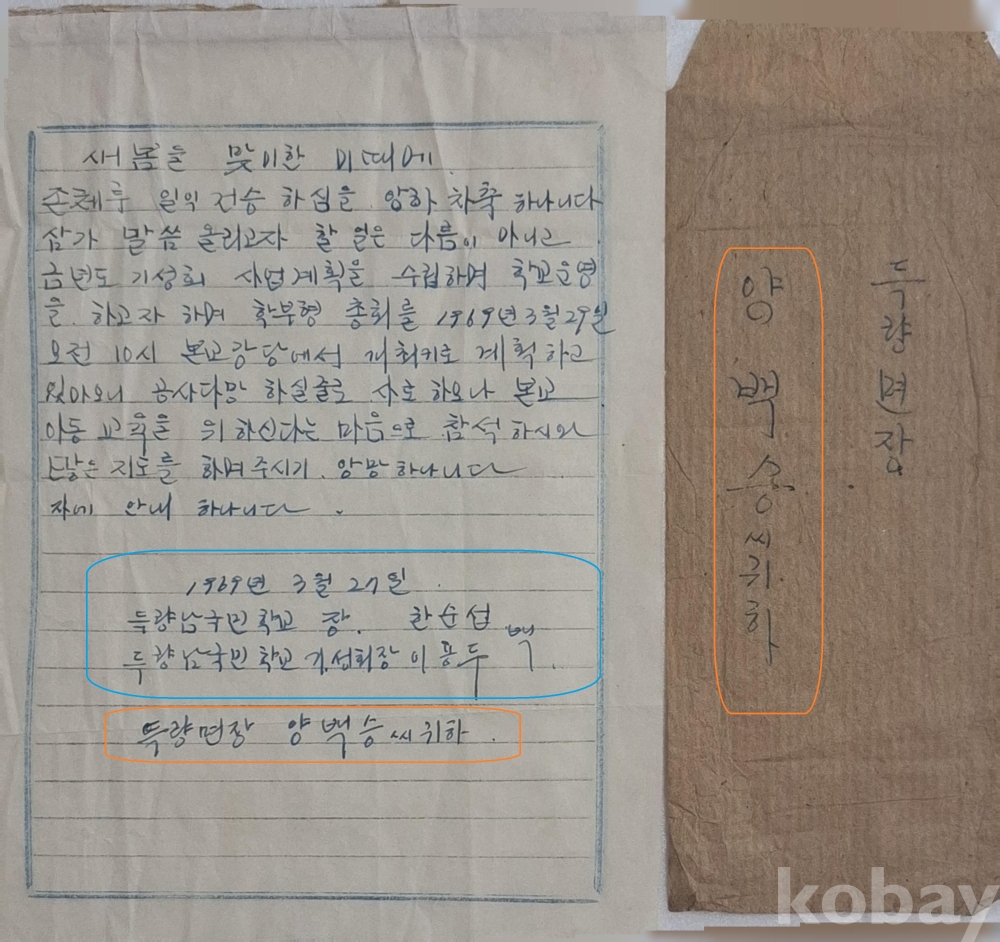 새봄을 맞이한 이때에
존체후 일익 건승 하심을 앙하 차축 하나니다
삼가 말씀 올리고자 할 일은 다름이 아니고
금년도 기성회 사업계획을 수립하며 학교운영
을 하고자 하며 학부형 총회를 1969년 3월 29일
오전 10시 본교강당에서 개최키로 계획 하고
있아오니 공사다망 하실줄로 사료 하오나 본교
아동 교육을 위하신다는 마음으로 참석 하시와
많은 지도를 하며주시기 앙망하나니다
자에 안내 하나니다 .
1969년 3월 27일
득량남국민학교 장. 한순섭
득량남국민학교 기성회장 이용두 백.
득량면장 양백승씨귀하.
득량면장
양백승씨귀하
kobay